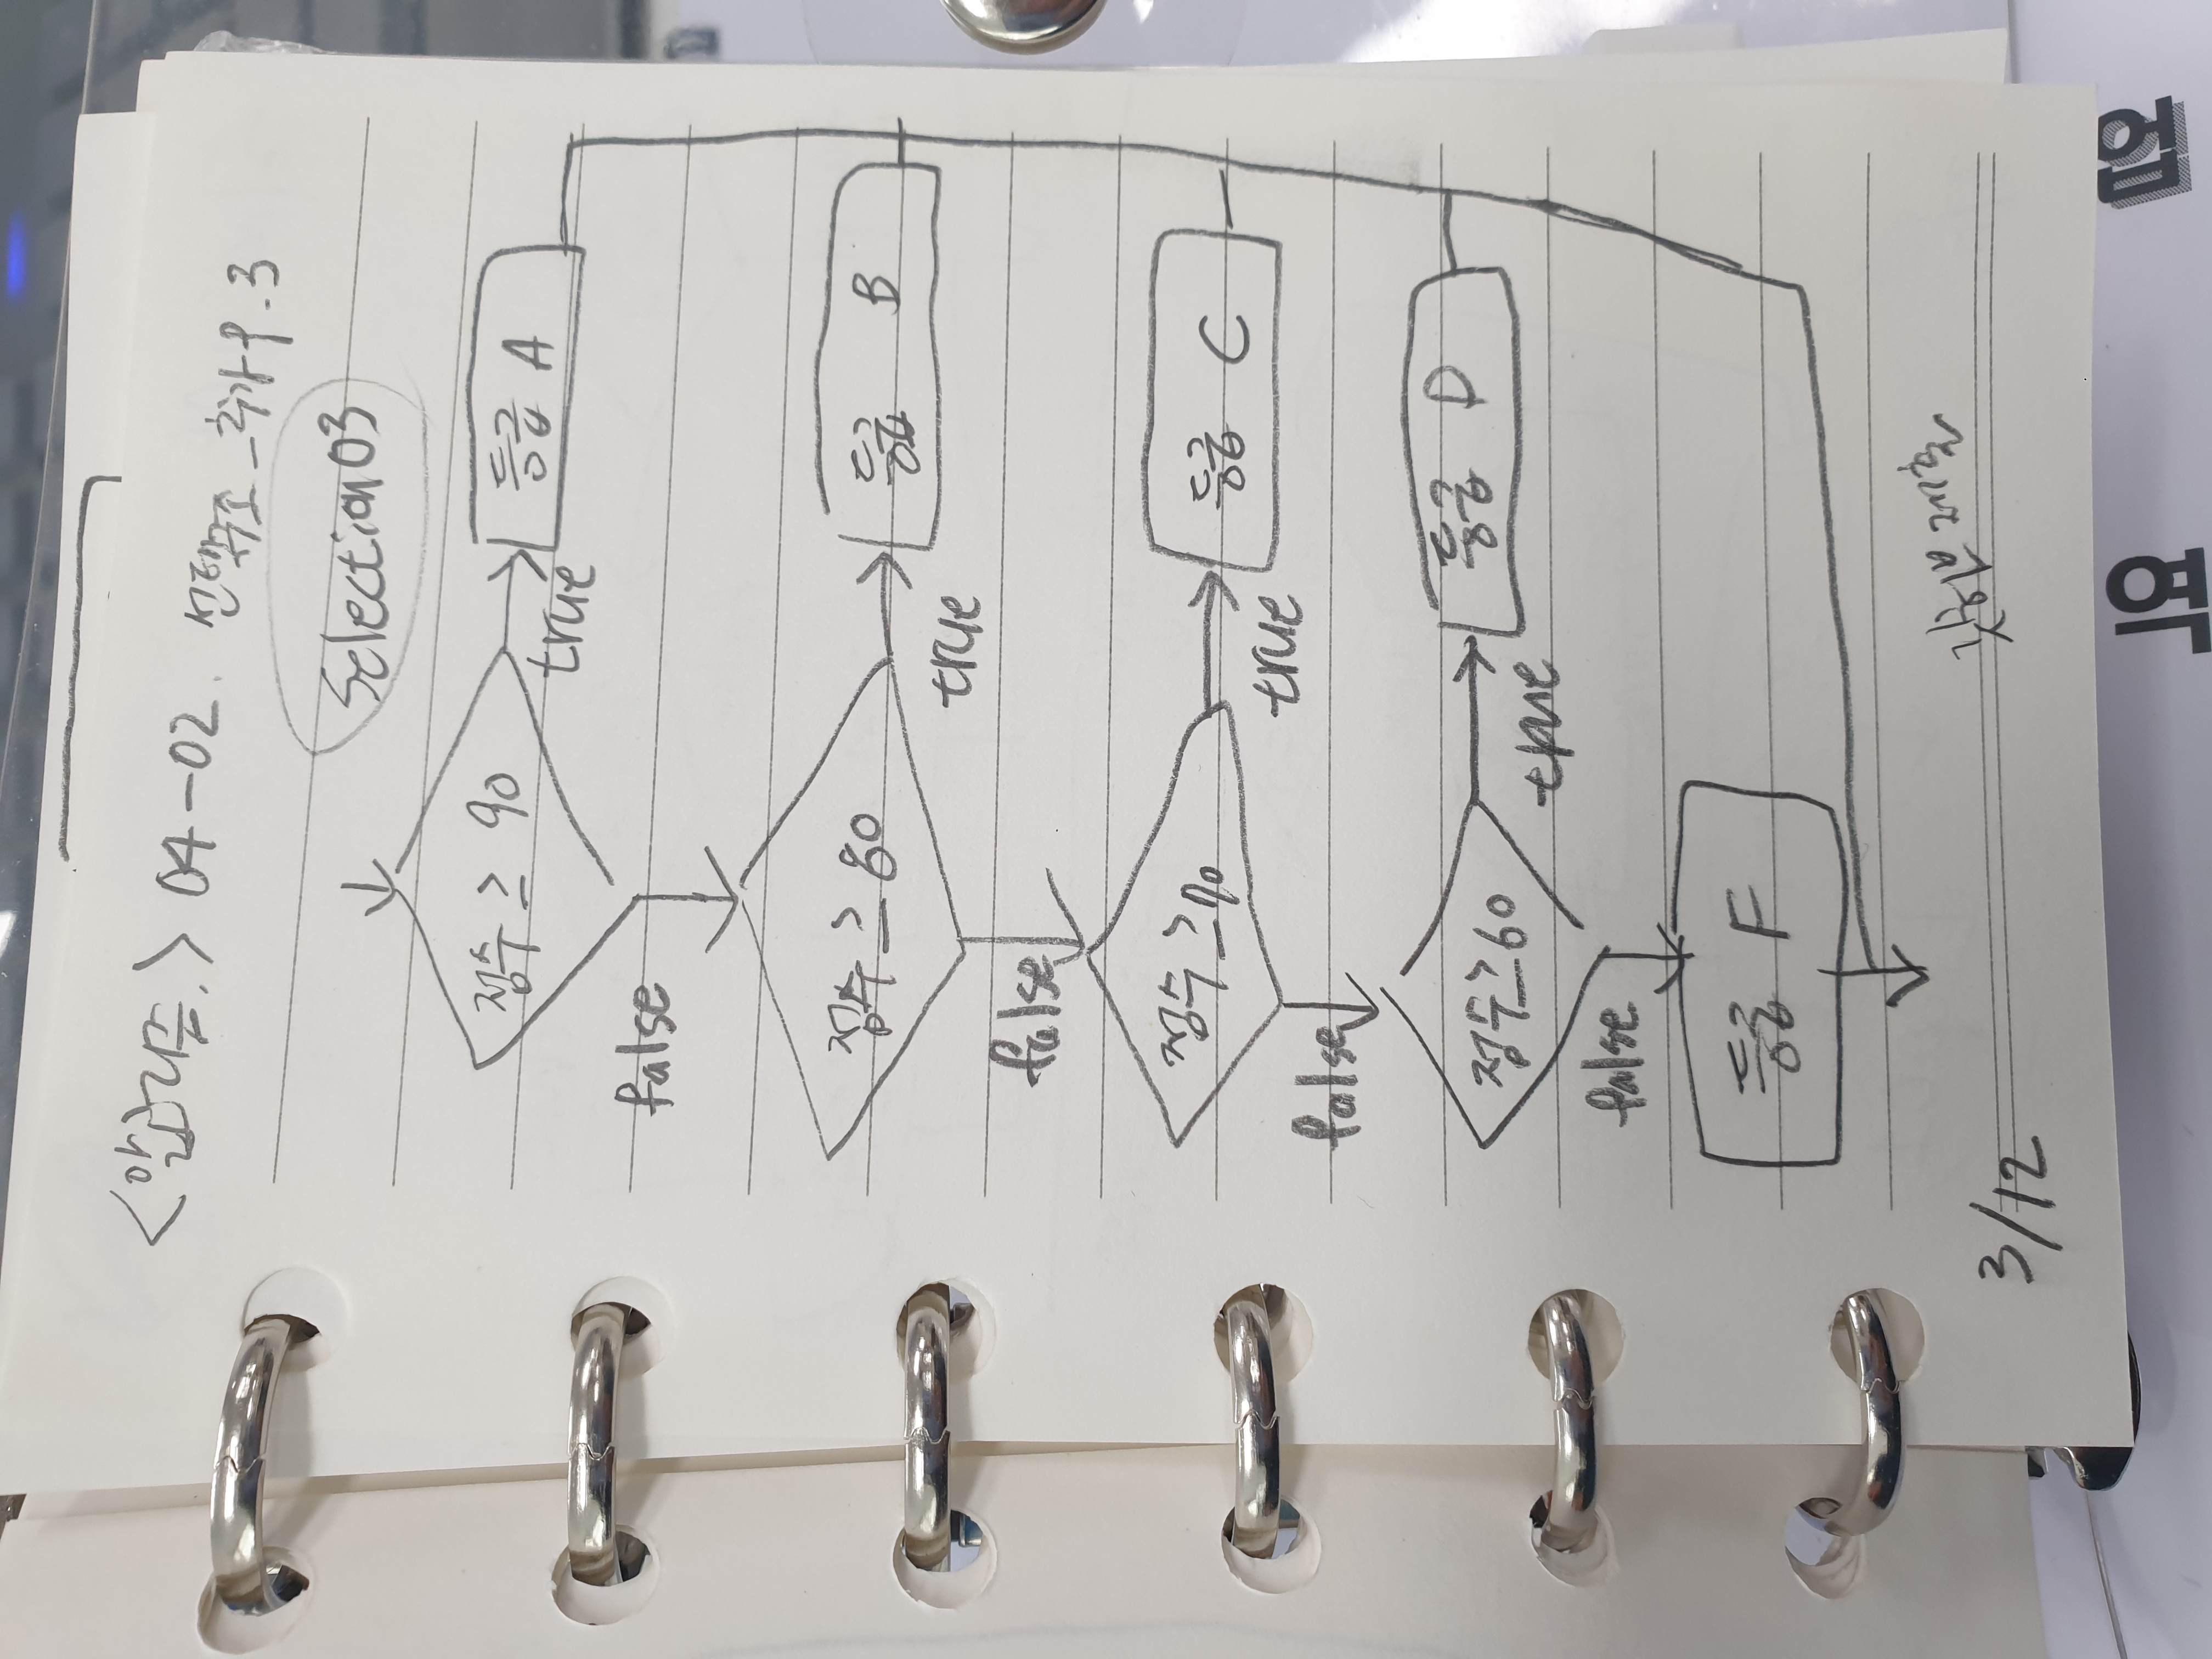 <알고리즘.> 04-02. 선택구조_추가 P.3
Selection03
점수 ≥ 90
true
등급 A
false
점수 ≥ 80
true
등급 B
false
점수 ≥ 70
true
등급 C
false
점수≥60
true
등급 D
false
등급 F
깃허브 제출
3/12